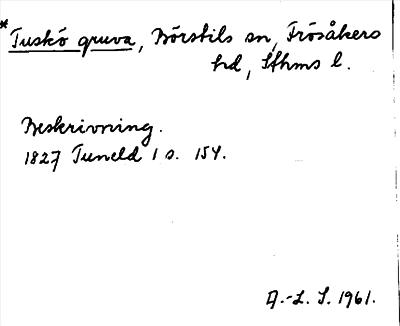 * Tuskö gruva, Börstils sn, Frösåkers
hd, Sthms l.
Beskrivning.
1827 Tuneld 1 s. 154.
A.-L. S. 1961.